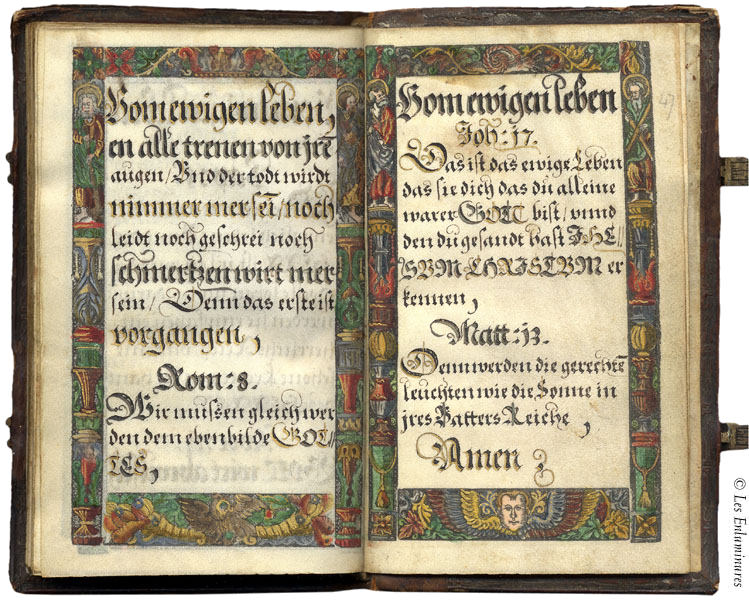 Vom ewigen leben,
en alle trenen von jrē
augen / Vnd der todt wirdt
nimmer mer sei / noch
leidt noch geschrei noch
schmertzen wirt mer
sein / Denn das erste ist
vorgangen,
Rom: 8.
Wir mussen gleich wer
den dem ebenbilde GOT//
TES,
Vom ewigen leben
Joh: 17.
Das ist das ewige Leben
das sie dich das du alleine
warer GOTT bist / vnnd
den du gesandt hast JHE//
SVM CHRISTVM er
kennen,
Matt: 13.
Denn werden die gerechtē
leuchten wie die Sonne in
jres Vatters Reiche,
Amen
47
© Les Enluminures